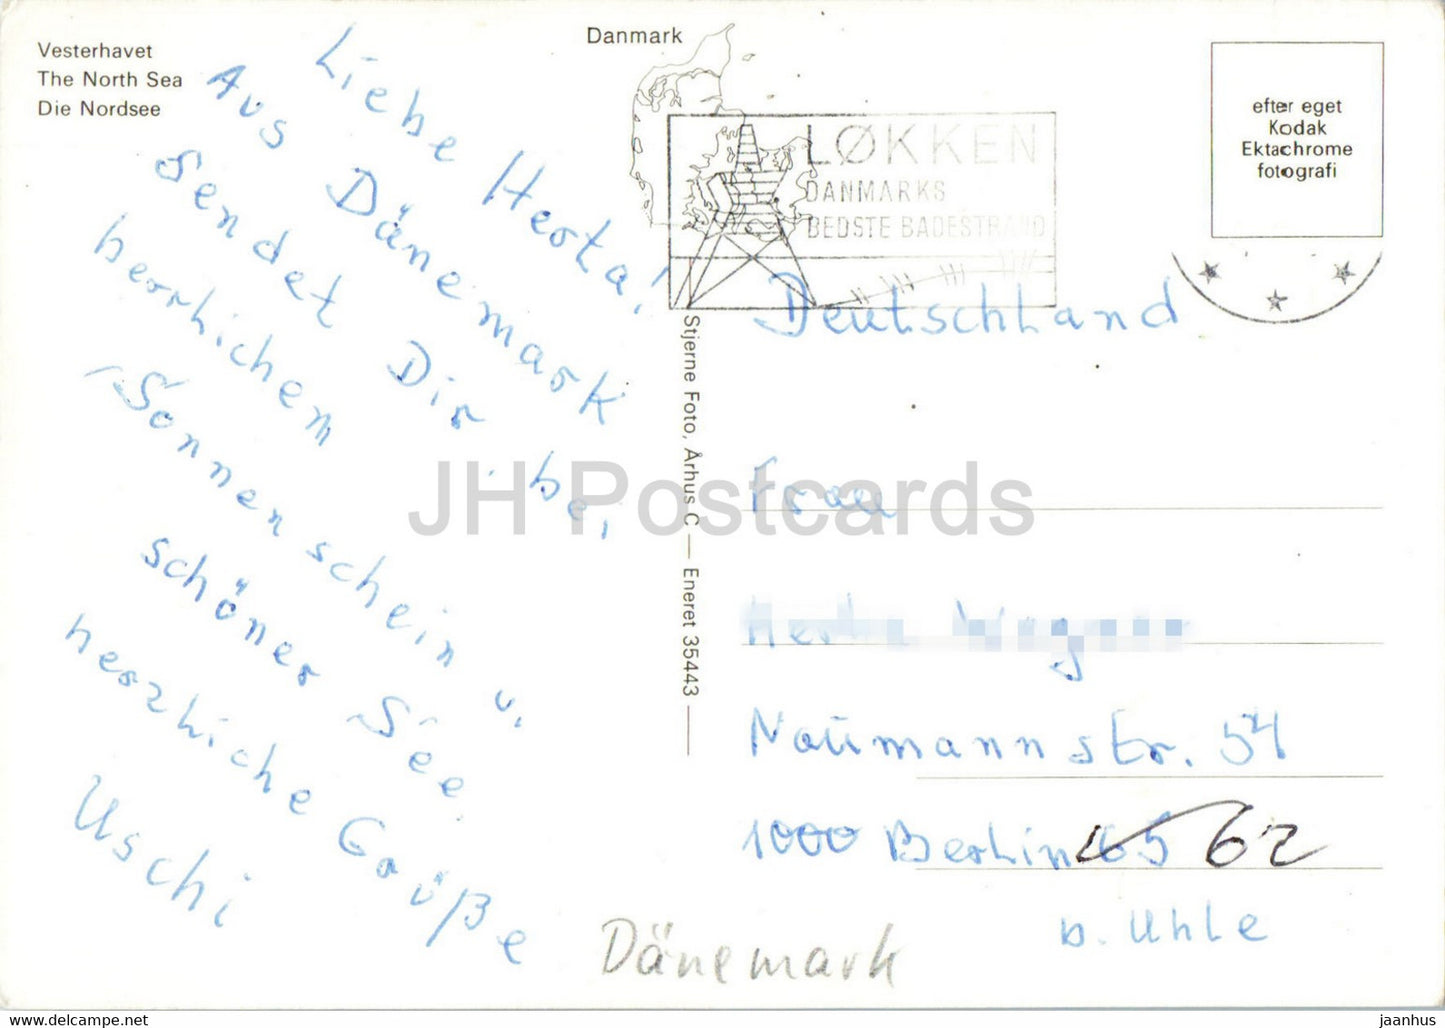 Vesterhavet
The North Sea
Die Nordsee
Danmark
efter eget
Kodak
Ektachrome
fotografi
LØKKEN
DANMARKS
BEDSTE BADESTRAND
Liebe Herta!
Aus Dänemark
sendet Dir bei
herrlichem
Sonnenschein u.
schöner See
herzliche Grüße
Uschi
Stjerne Foto, Århus C — Eneret 35443
Deutschland
Frau
Naumannstr. 54
1000 Berlin 65 62
b. Uhle
Dänemark
JH Postcards
www.delcampe.net
jaanhus